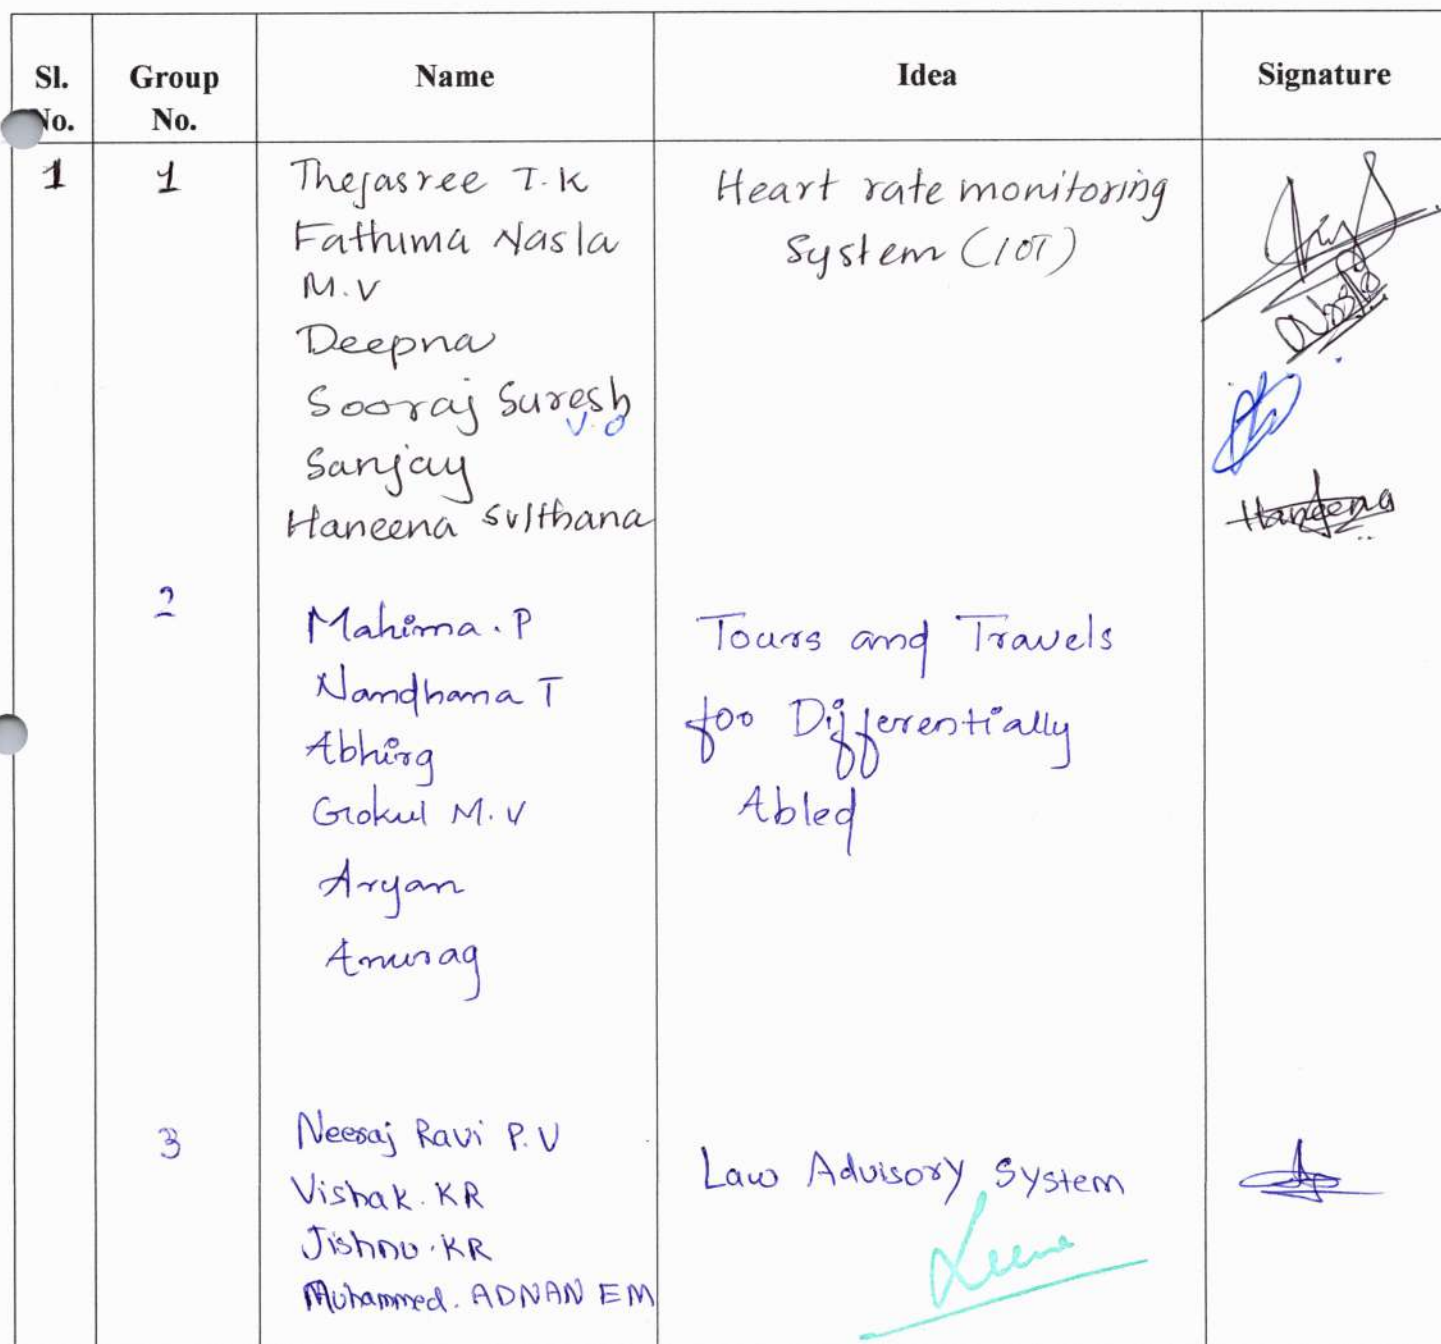 Sl. No.
Group No.
Name
Idea
Signature
1
1
Thejasree T.K
Fathima Nasla
M.V
Deepna
Sooraj Suresh
V.O
Sanjay
Haneena Sulthana
Heart rate monitoring
System (IOT)
Nasla
Haneena
2
Mahima. P
Nandhana T
Abhirg
Gokul M. V
Aryan
Anurag
Tours and Travels
for Differentially
Abled
3
Neeraj Ravi P.V
Vishak. KR
Jishnu. KR
Muhammed. ADNAN EM
Law Advisory System